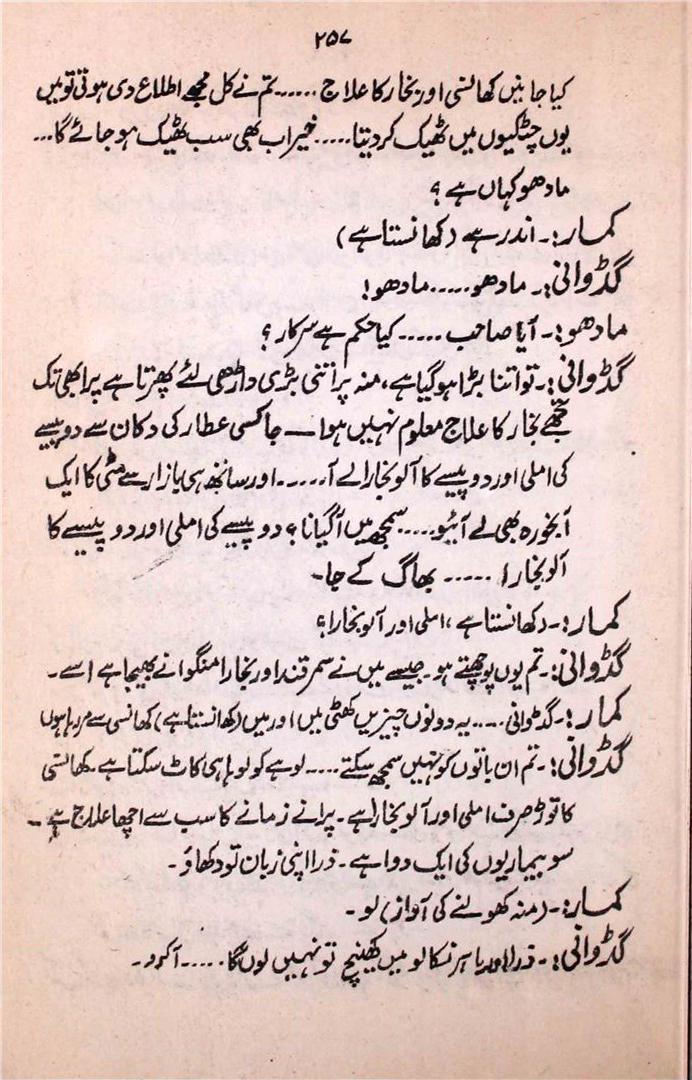 ۲۵۷
کیا جانیں کھانسی اور بخار کا علاج ..... تم نے کل مجھے اطلاع دی ہوتی تو میں
یوں چٹکیوں میں ٹھیک کر دیتا..... خیر اب بھی سب ٹھیک ہو جائے گا...
مادھو کہاں ہے ؟
کمار:۔ اندر ہے (کھانستا ہے)
گڈوانی:۔ مادھو..... مادھو!
مادھو:۔ آیا صاحب ..... کیا حکم ہے سرکار ؟
گڈوانی:۔ تو اتنا بڑا ہو گیا ہے، منہ پر اتنی بڑی داڑھی لئے پھرتا ہے پر ابھی تک
تجھے بخار کا علاج معلوم نہیں ہوا — جا کسی عطار کی دکان سے دو پیسے
کی املی اور دو پیسے کا آلو بخارا لے آ..... اور ساتھ ہی بازار سے مٹی کا ایک
آبخورہ بھی لے آئیو..... سمجھ میں آگیا نا ؟ دو پیسے کی املی اور دو پیسے کا
آلو بخارا ..... بھاگ کے جا۔
کمار:۔ (کھانستا ہے) املی اور آلو بخارا؟
گڈوانی:۔ تم یوں پوچھتے ہو۔ جیسے میں نے سمرقند اور بخارا منگوانے بھیجا ہے اسے۔
کمار:۔ گڈوانی .... یہ دونوں چیزیں کھٹی ہیں اور میں (کھانستا ہے) کھانسی سے مر رہا ہوں
گڈوانی:۔ تم ان باتوں کو نہیں سمجھ سکتے .... لوہے کو لوہا ہی کاٹ سکتا ہے۔ کھانسی
کا توڑ صرف املی اور آلو بخارا ہے۔ پرانے زمانے کا سب سے اچھا علاج ہے۔
سو بیماریوں کی ایک دوا ہے۔ ذرا اپنی زبان تو دکھاؤ۔
کمار:۔ (منہ کھولنے کی آواز) لو۔
گڈوانی:۔ ذرا اور باہر نکالو میں کھینچ تو نہیں لوں گا ..... آ کرو۔